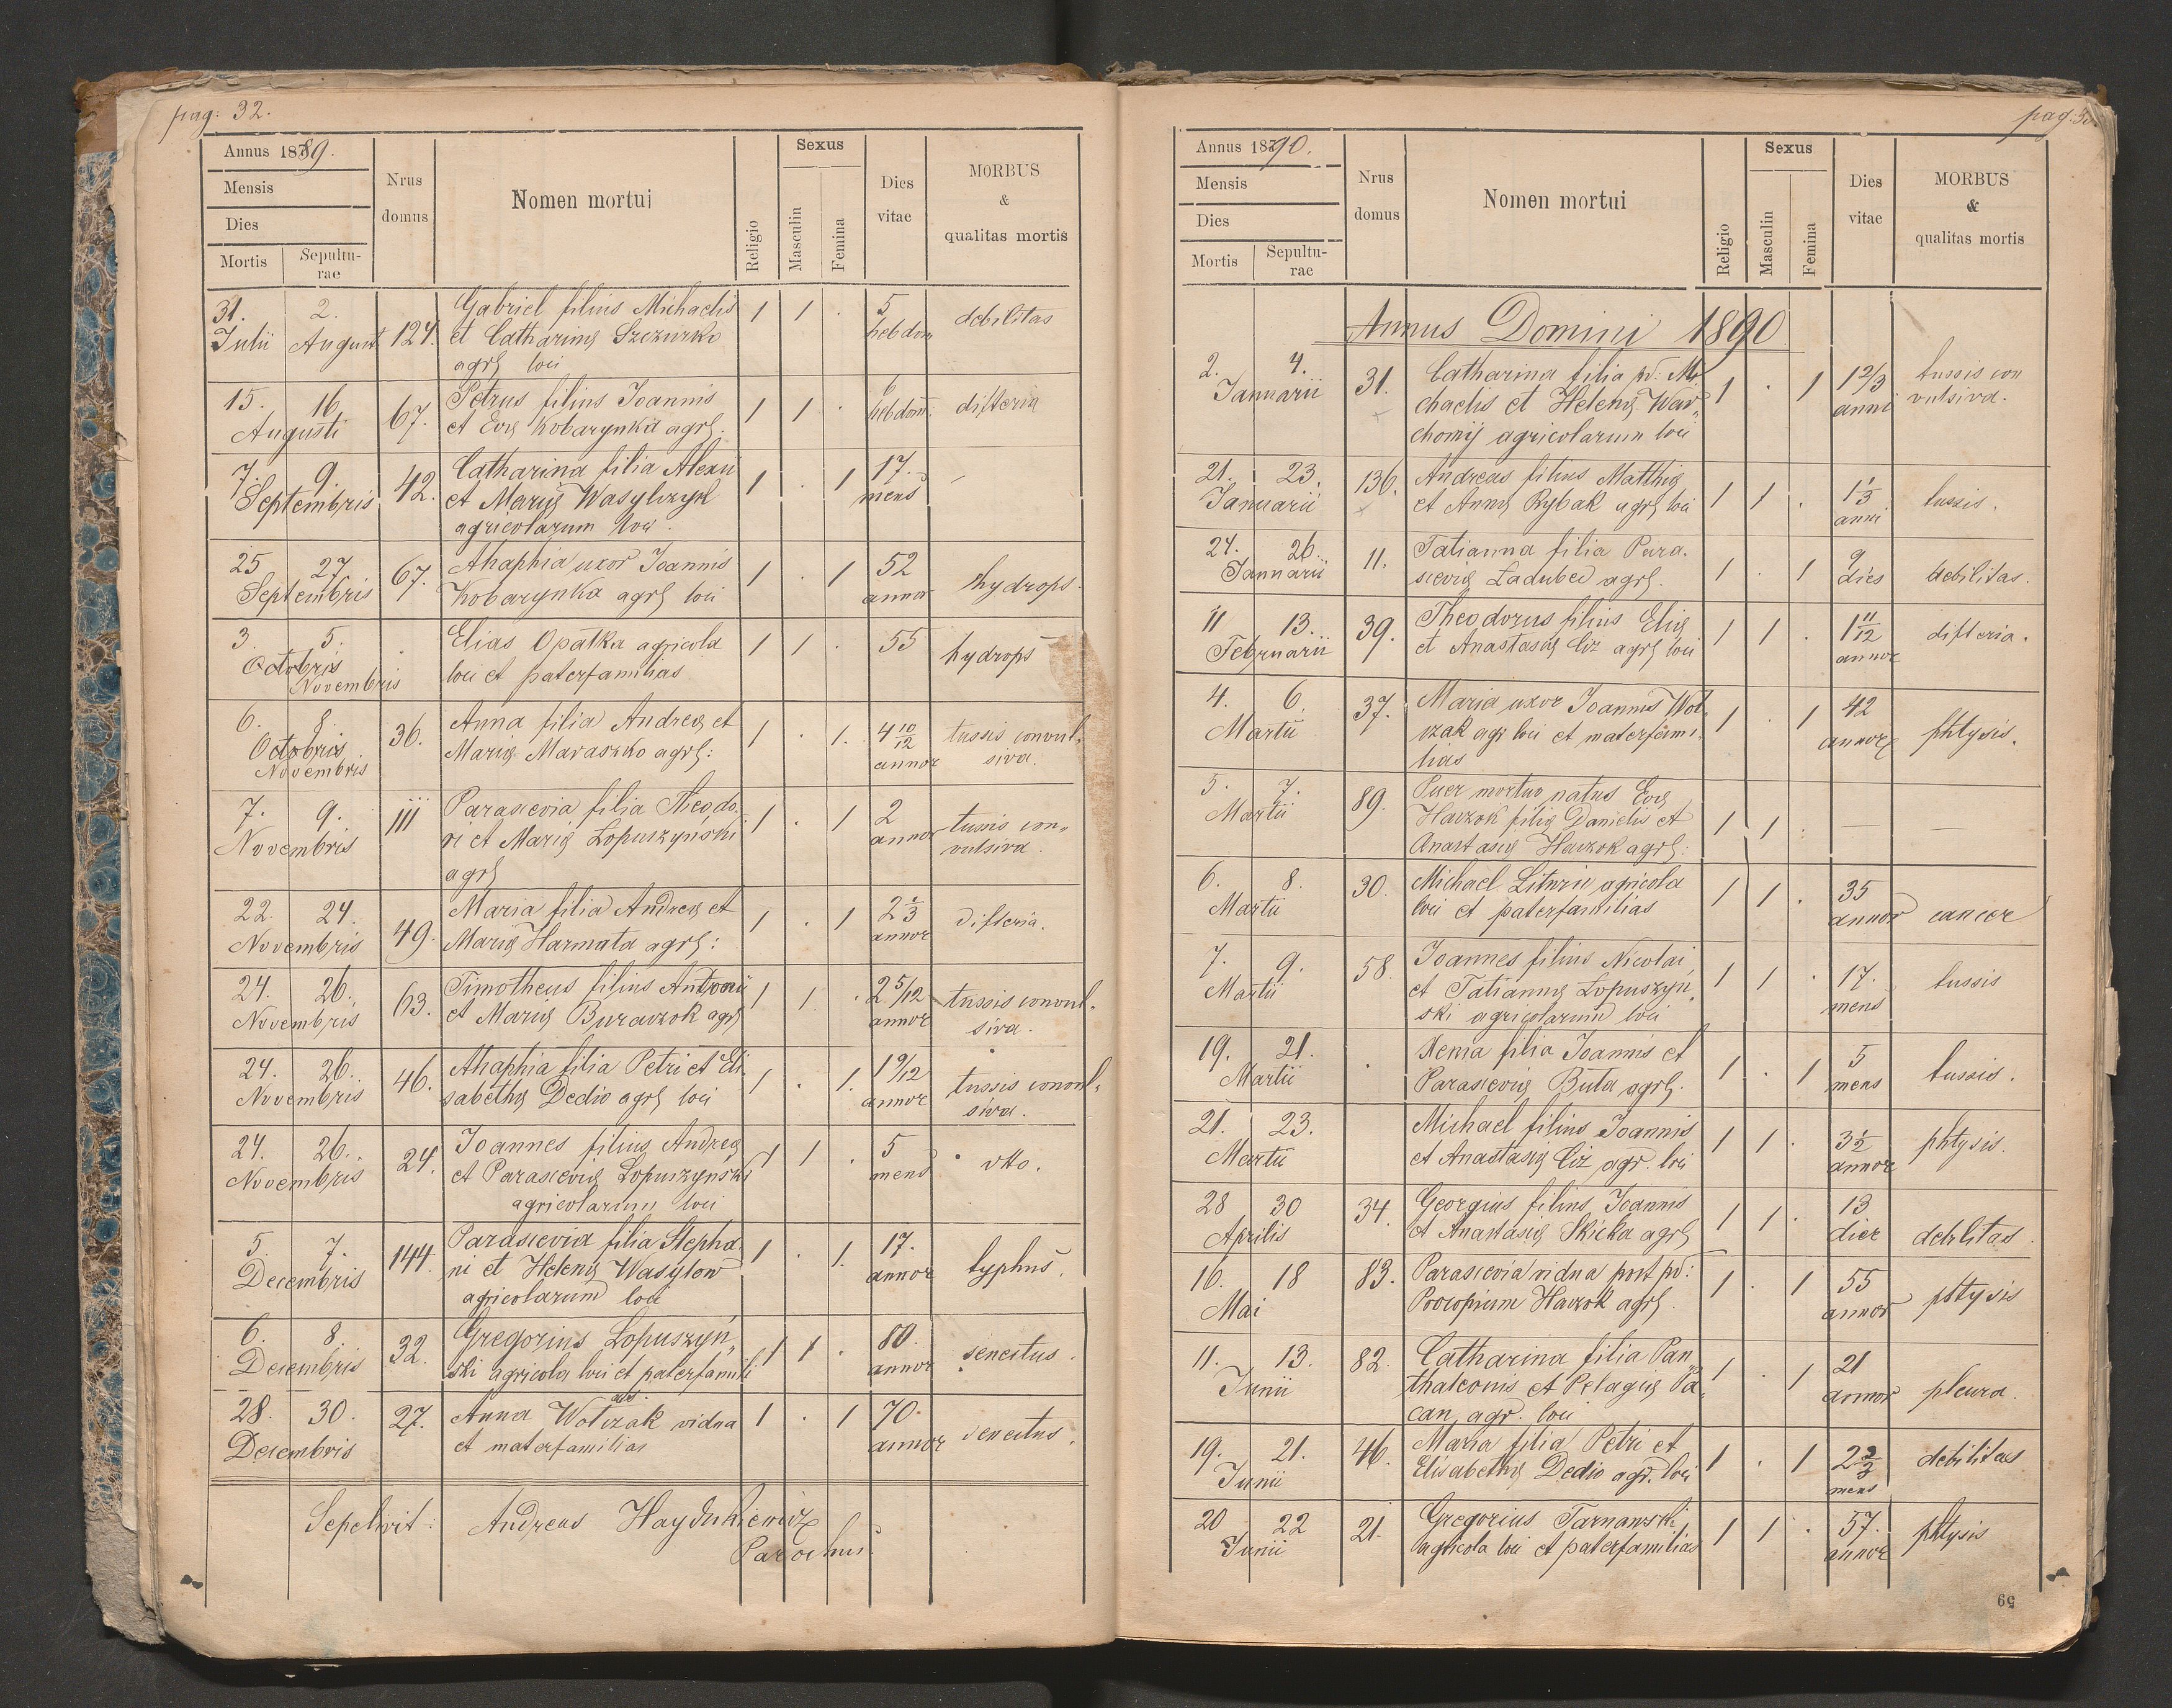 pag: 32.
Annus 1889.
Mensis
Dies
Mortis
Sepultu-
rae
Nrus
domus
Nomen mortui
Religio
Sexus
Masculin
Femina
Dies
vitae
MORBUS
&
qualitas mortis
31. 2. 124. Gabriel filius Michaelis 1 1 . 5 debilitas
Julii August et Catharinę Szczurko hebdom
agrę loci
15. 16 67. Petrus filius Joannis 1 1 . 6 difteria
Augusti et Evę Kobarynka agrę. hebdom.
7. 9. 42. Catharina filia Alexii 1 . 1 17.
Septembris et Marię Wasylczyk mens
agricolarum loci.
25 27 67. Ahaphia uxor Joannis 1 . 1 52 hydrops.
Septembris Kobarynka agrę loci annor
3. 5. . Elias Opałka agricola 1 1 . 55 hydrops
Octobris loci et paterfamilias
Novembris
6. 8. 36. Anna filia Andreę et 1 . 1. 4 10/12 tussis convul-
Octobris Marię Maraszko agrę: annor siva.
Novembris
7. 9. 111 Parascevia filia Theodo- 1 . 1 2 tussis con„
Novembris ri et Marię Łopuszyński annor vulsiva.
agrę
22. 24. 49. Maria filia Andreę et 1 . 1 2 1/3 difteria.
Novembris Marię Harmata agrę: annor
24. 26. 63. Timotheus filius Antonii 1 1 . 2 5/12 tussis convul-
Novembris et Marię Buraczok agrę annor siva.
24. 26. 46. Ahaphia filia Petri et Eli- 1 . 1. 1 9/12 tussis convul-
Novembris sabethę Dedio agrę loci annor siva.
24. 26. 24. Joannes filius Andreę 1 1 . 5 dtto.
Novembris et Parascevię Łopuszyński mens
agricolarum loci
5. 7. 144. Parascevia filia Stepha- 1 . 1. 17. typhus.
Decembris ni et Helenę Wasylow annor
agricolarum loci
6. 8. 32. Gregorius Łopuszyń„ 1 1 . 80. senectus.
Decembris ski agricola loci et paterfamili annor
as.
28. 30. 27. Anna Wołczak vidua 1 . 1 70. senectus.
Decembris et materfamilias annor
Sepelivit: Andreas Haydukiewicz
Parochus.
Annus 1890.
Mensis
Dies
Mortis
Sepultu-
rae
Nrus
domus
Nomen mortui
Religio
Sexus
Masculin
Femina
Dies
vitae
MORBUS
&
qualitas mortis
Annus Domini 1890
2. 4. 31. Catharina filia pd: Mi- 1 . 1 1 2/3 tussis con
Januarii chaelis et Helenę War„ anni vulsiva.
chomij agricolarum loci
21. 23. 136. Andreas filius Matthię 1 1 . 1 1/3 tussis.
Januarii et Annę Rybak agrę loci anni
24. 26. 11. Tatianna filia Para- 1 . 1 9 debilitas.
Januarii scevię Ładubec agrę. dies
11 13. 39. Theodorus filius Elię 1 1 . 1 11/12 difteria.
Februarii et Anastasię Ciz agrę loci annor
4. 6. 37. Maria uxor Joannis Woł„ 1 . 1 42 phtysis.
Martii czak agr loci et materfami- annor
lias
5. 7. 89. Puer mortuo natus Evę 1 1 . — —
Martii Haczok filię Danielis et
Anastasię Haczok agrę:
6. 8. 30. Michael Liturii agricola 1 1 . 35 cancer
Martii loci et paterfamilias annor
7. 9. 58. Joannes filius Nicolai 1 1 . 17. tussis
Martii et Tatiannę Łopuszyń„ mens
ski agricolarum loci
19. 21. . Xenia filia Joannis et 1 . 1 5 tussis.
Martii Parascevię Buta agrę. mens
21. 23. Michael filius Joannis 1 1 . 3 1/2 phtysis.
Martii et Anastasię Ciz agr. loci annor
28 30 34. Georgius filius Joannis 1 1 . 13 debilitas.
Aprilis et Anastasię Skicka agrę dier
16. 18 83. Parascevia vidua post pd: 1 . 1 55 phtysis
Mai Procopium Haczok agrę. annor
11. 13. 82. Catharina filia Pan„ 1 . 1 21 pleura.
Junii thaleonis et Pelagię Pa- annor
can, agr. loci
19. 21. 46. Maria filia Petri et 1 . 1 2 2/3 debilitas
Junii Elisabethę Dedio agr. loci mens
20 22 21. Gregorius Tarnawski 1 1 . 57. phtysis
Junii agricola loci et paterfamilias annor
59